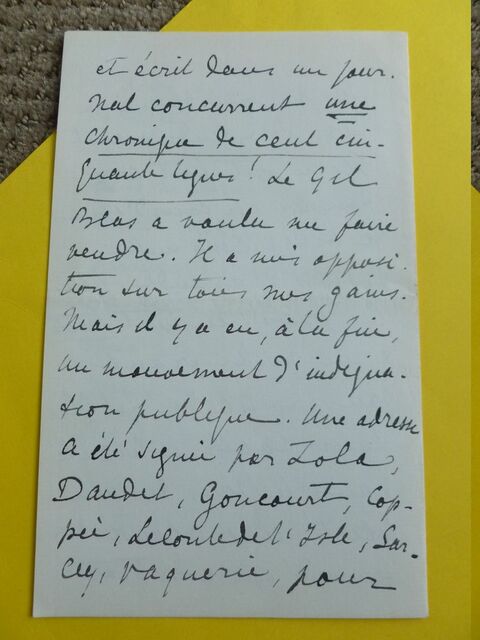 et écrit dans un jour-
nal concurrent une
chronique de cent cin-
quante lignes! Le Gil
Blas a voulu me faire
vendre. Il a mis opposi-
tion sur tous mes gains.
Mais il y a eu, à la fin,
un mouvement d'indigna-
tion publique. Une adresse
a été signée par Zola,
Daudet, Goncourt, Cop-
pée, Leconte de l'Isle, Sar-
cey, Vaquerie, pour